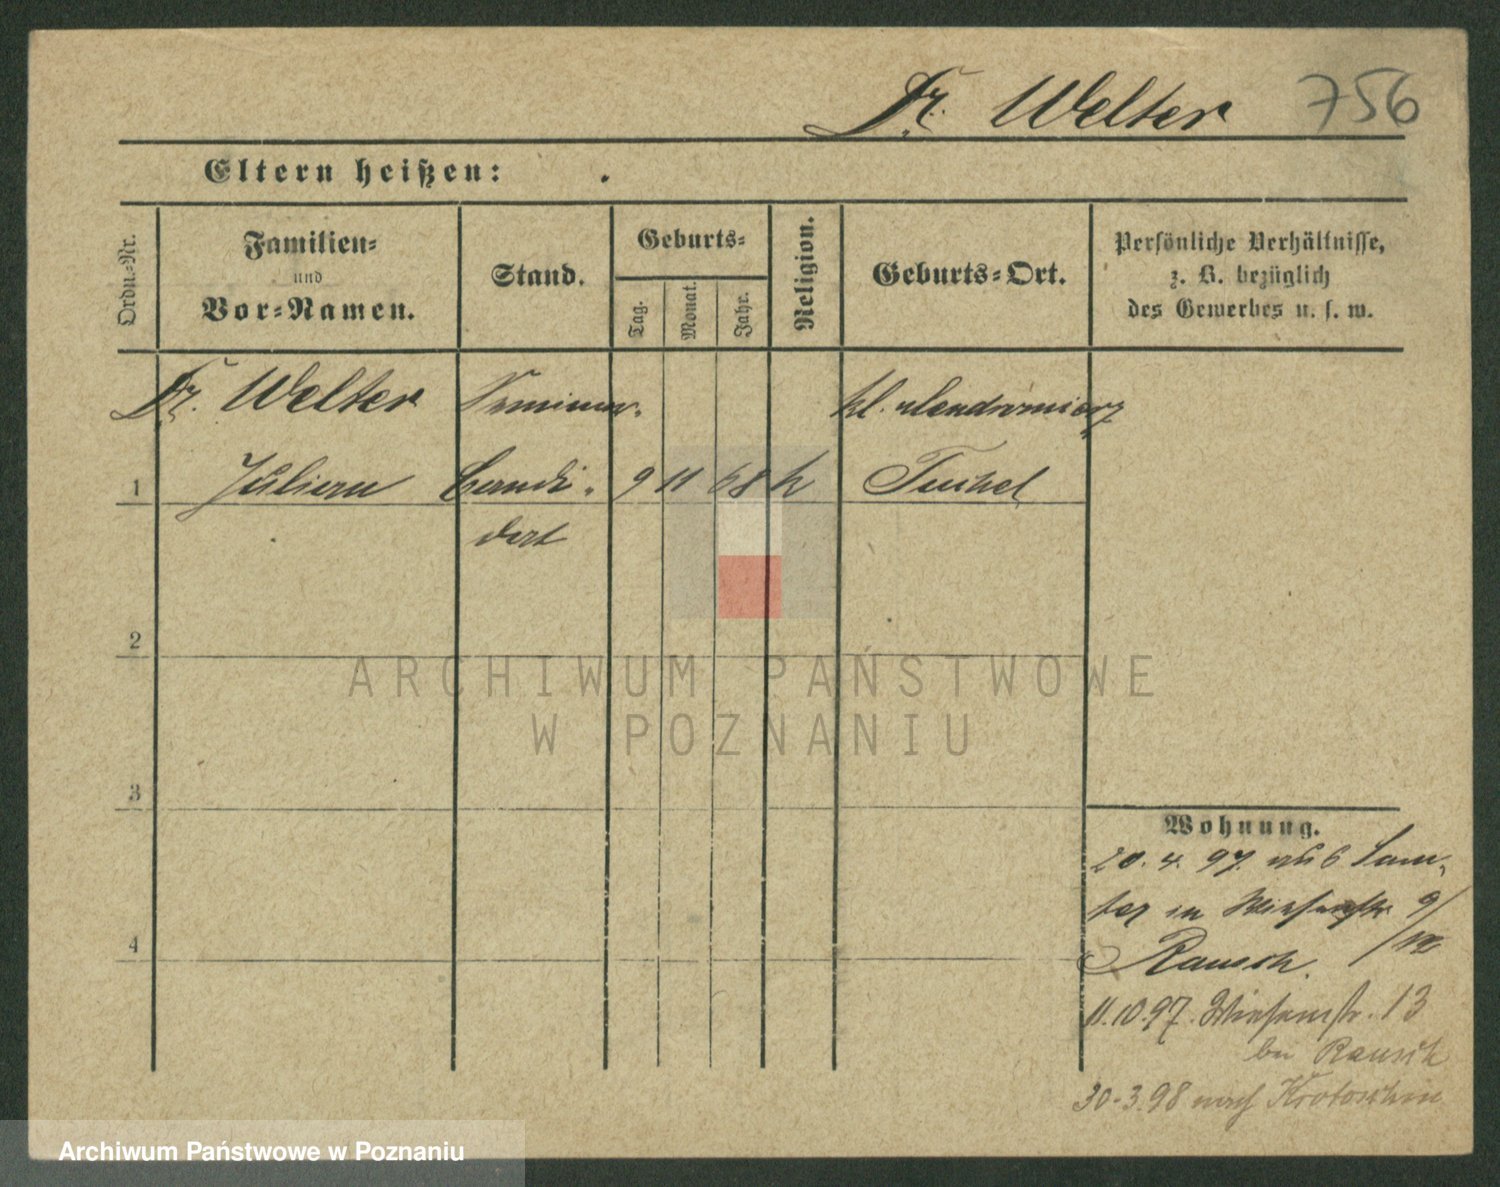 Dr. Welter 756
Eltern heißen:
Ordn.=Nr.
Familien=
und
Vor=Namen.
Stand.
Geburts=
Tag.
Monat.
Jahr.
Religion.
Geburts=Ort.
Persönliche Verhältnisse,
z. B. bezüglich
des Gewerbes u. s. w.
Dr. Welter Seminar- kl.
1 Julian Candi- 9 11 68 k Tuchel
dat
2
3
4
ARCHIWUM PAŃSTWOWE
W POZNANIU
Wohnung.
20.4.97. aus Sam-
ter in Wiesenstr. 9/
Rausch.
11.10.97. Wiesenstr. 13
bei Rausch
30.3.98 nach Krotoschin
Archiwum Państwowe w Poznaniu